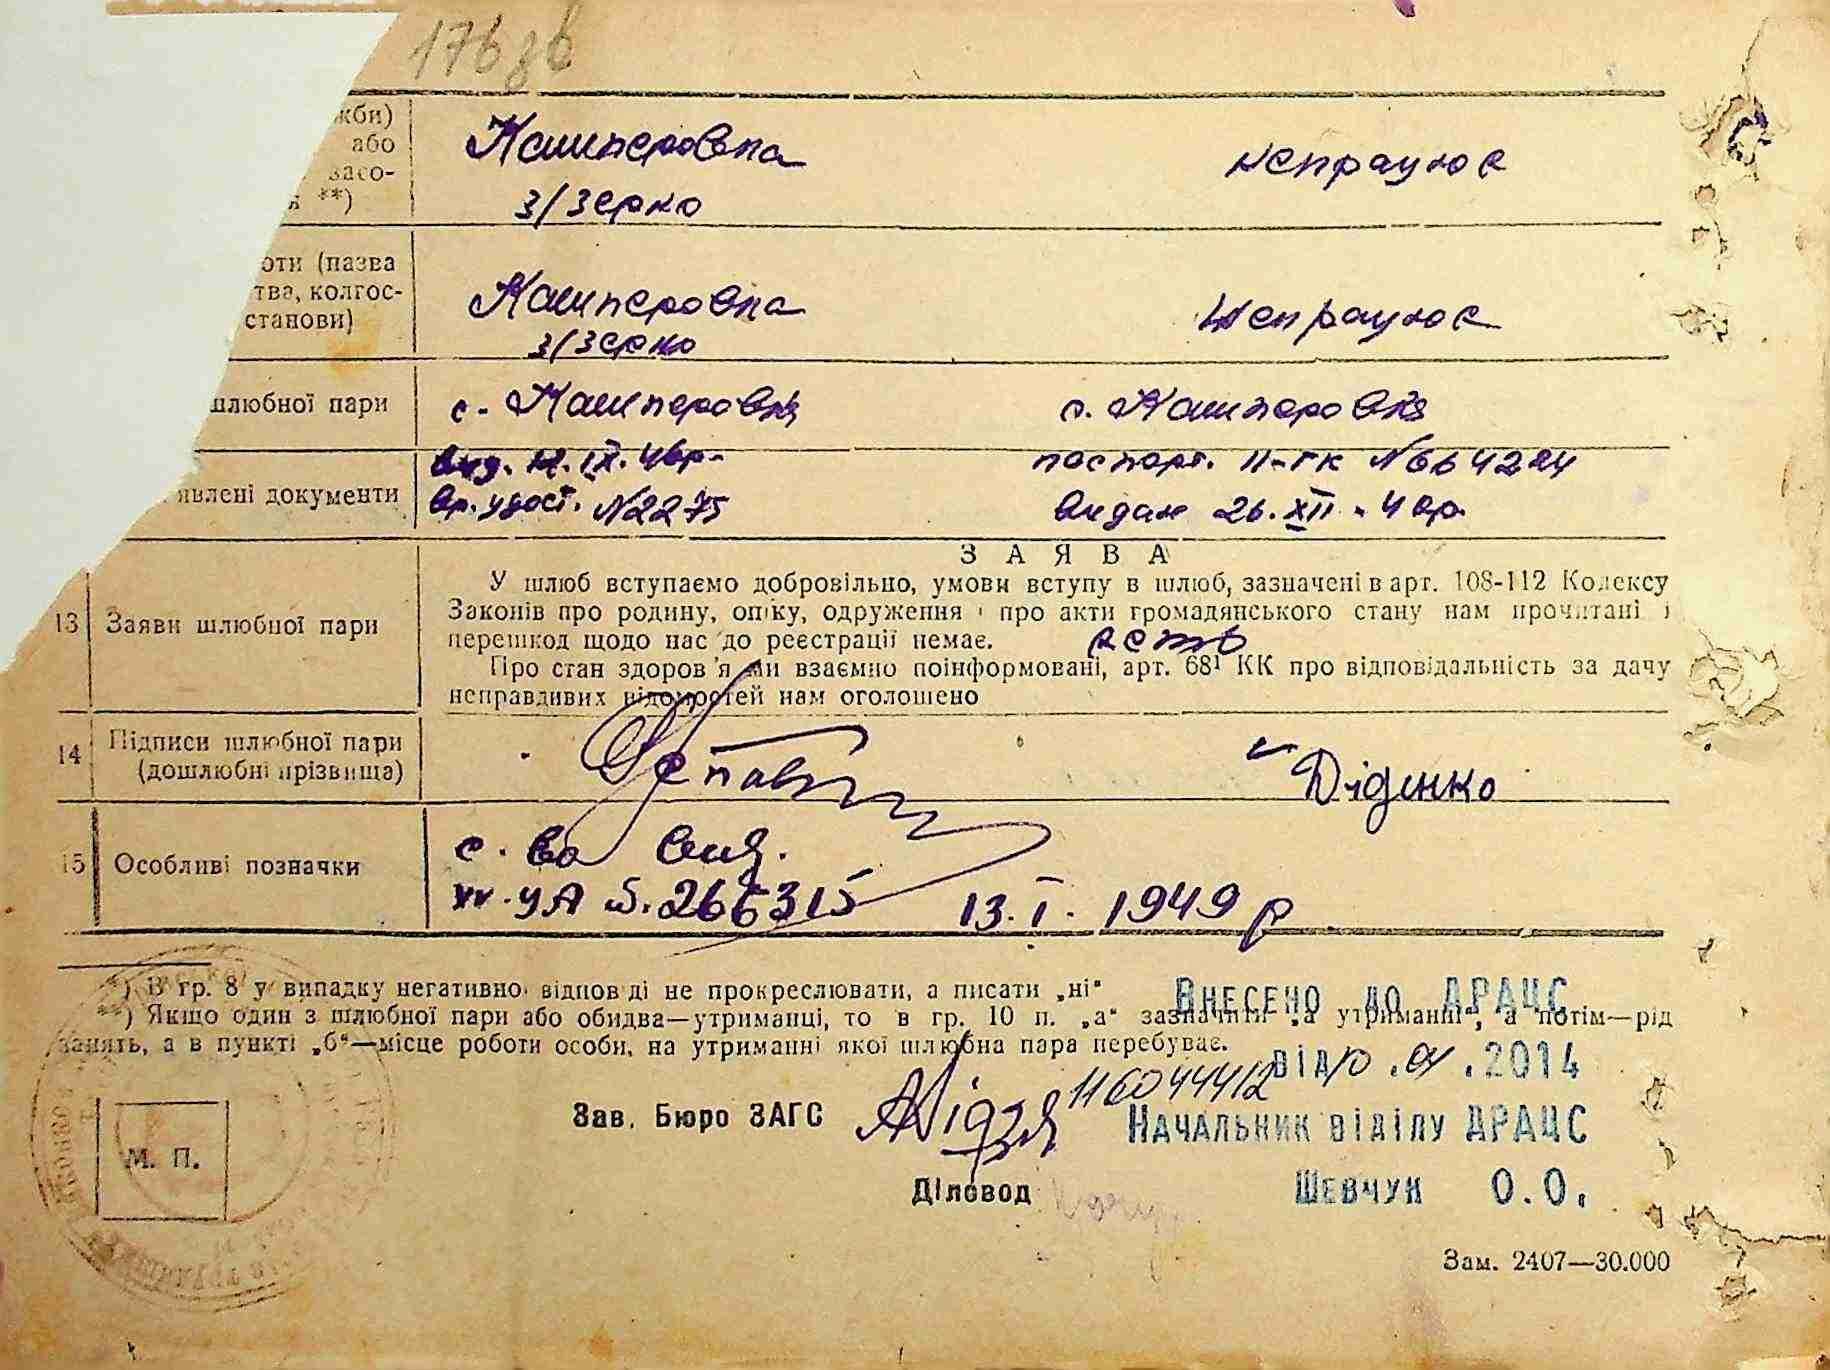 176 зв
жби)
або
засо-
**)
Кашперовка
з/зерно
непрацює
оти (назва
тва, колгос-
станови)
Кашперовка
з/зерно
непрацює
шлюбної пари
с. Кашперовка
с. Кашперовка
явлені документи
вид. IX. 48р.
вр. удост. №2275
паспорт. II-ГК №664224
видан 26.XII.48р.
ЗАЯВА
13 Заяви шлюбної пари
У шлюб вступаємо добровільно, умови вступу в шлюб, зазначені в арт. 108-112 Кодексу
Законів про родину, опіку, одруження і про акти громадянського стану нам прочитані і
перешкод щодо нас до реєстрації немає.
Про стан здоров'я ми взаємно поінформовані, арт. 68¹ КК про відповідальність за дачу
неправдивих відомостей нам оголошено
14 Підписи шлюбної пари
(дошлюбні прізвища)
Діденко
15 Особливі позначки
с. во
УА 266315 13.I.1949 р
*) В гр. 8 у випадку негативної відповіді не прокреслювати, а писати „ні“
**) Якщо один з шлюбної пари або обидва—утриманці, то в гр. 10 п. „а“ зазначити „а утриманні“, а потім—рід
занять, а в пункті „б“—місце роботи особи, на утриманні якої шлюбна пара перебуває.
Внесено до ДРАЦС
від 10.01.2014
116044412
Зав. Бюро ЗАГС
Начальник відділу ДРАЦС
М. П.
Діловод
Шевчук О.О.
Зам. 2407—30.000